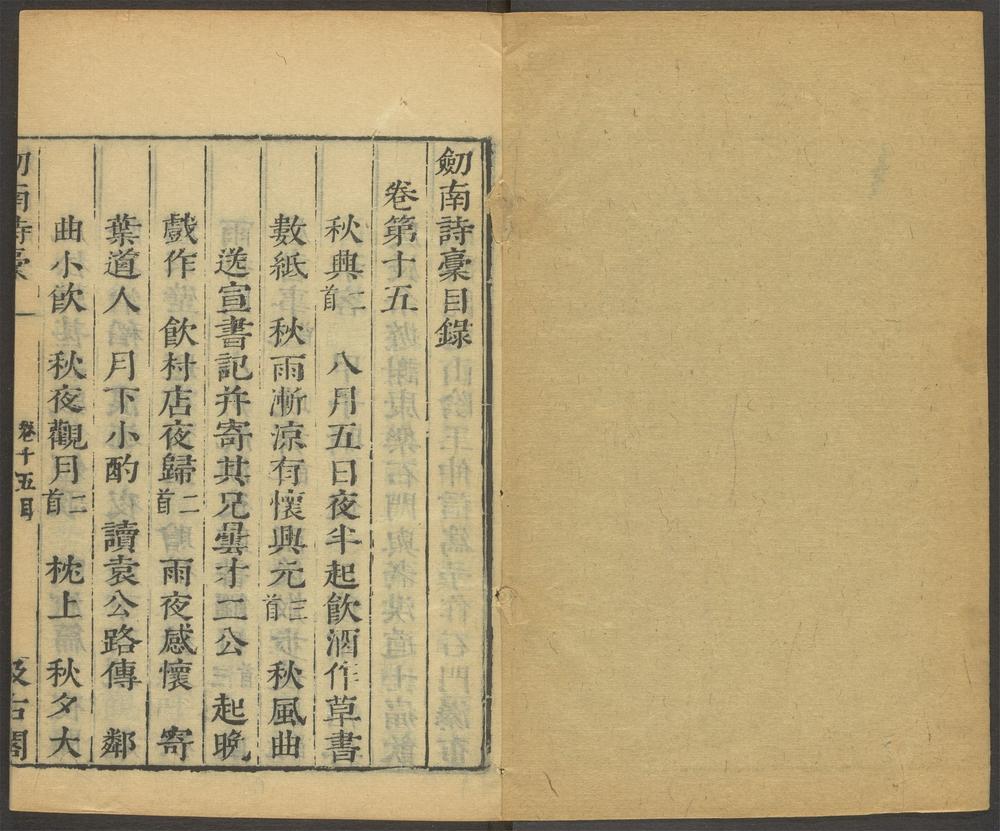 劒南詩稾目錄
卷第十五
秋興二首 八月五日夜半起飲酒作草書
數紙 秋雨漸涼有懷興元三首 秋風曲
送宣書記并寄其兄曇才二公 起晚
戲作 飲村店夜歸二首 雨夜感懷 寄
葉道人 月下小酌 讀袁公路傳 鄰
曲小飲 秋夜觀月二首 枕上 秋夕大
南詩稾 一 卷十五目 汲古閣